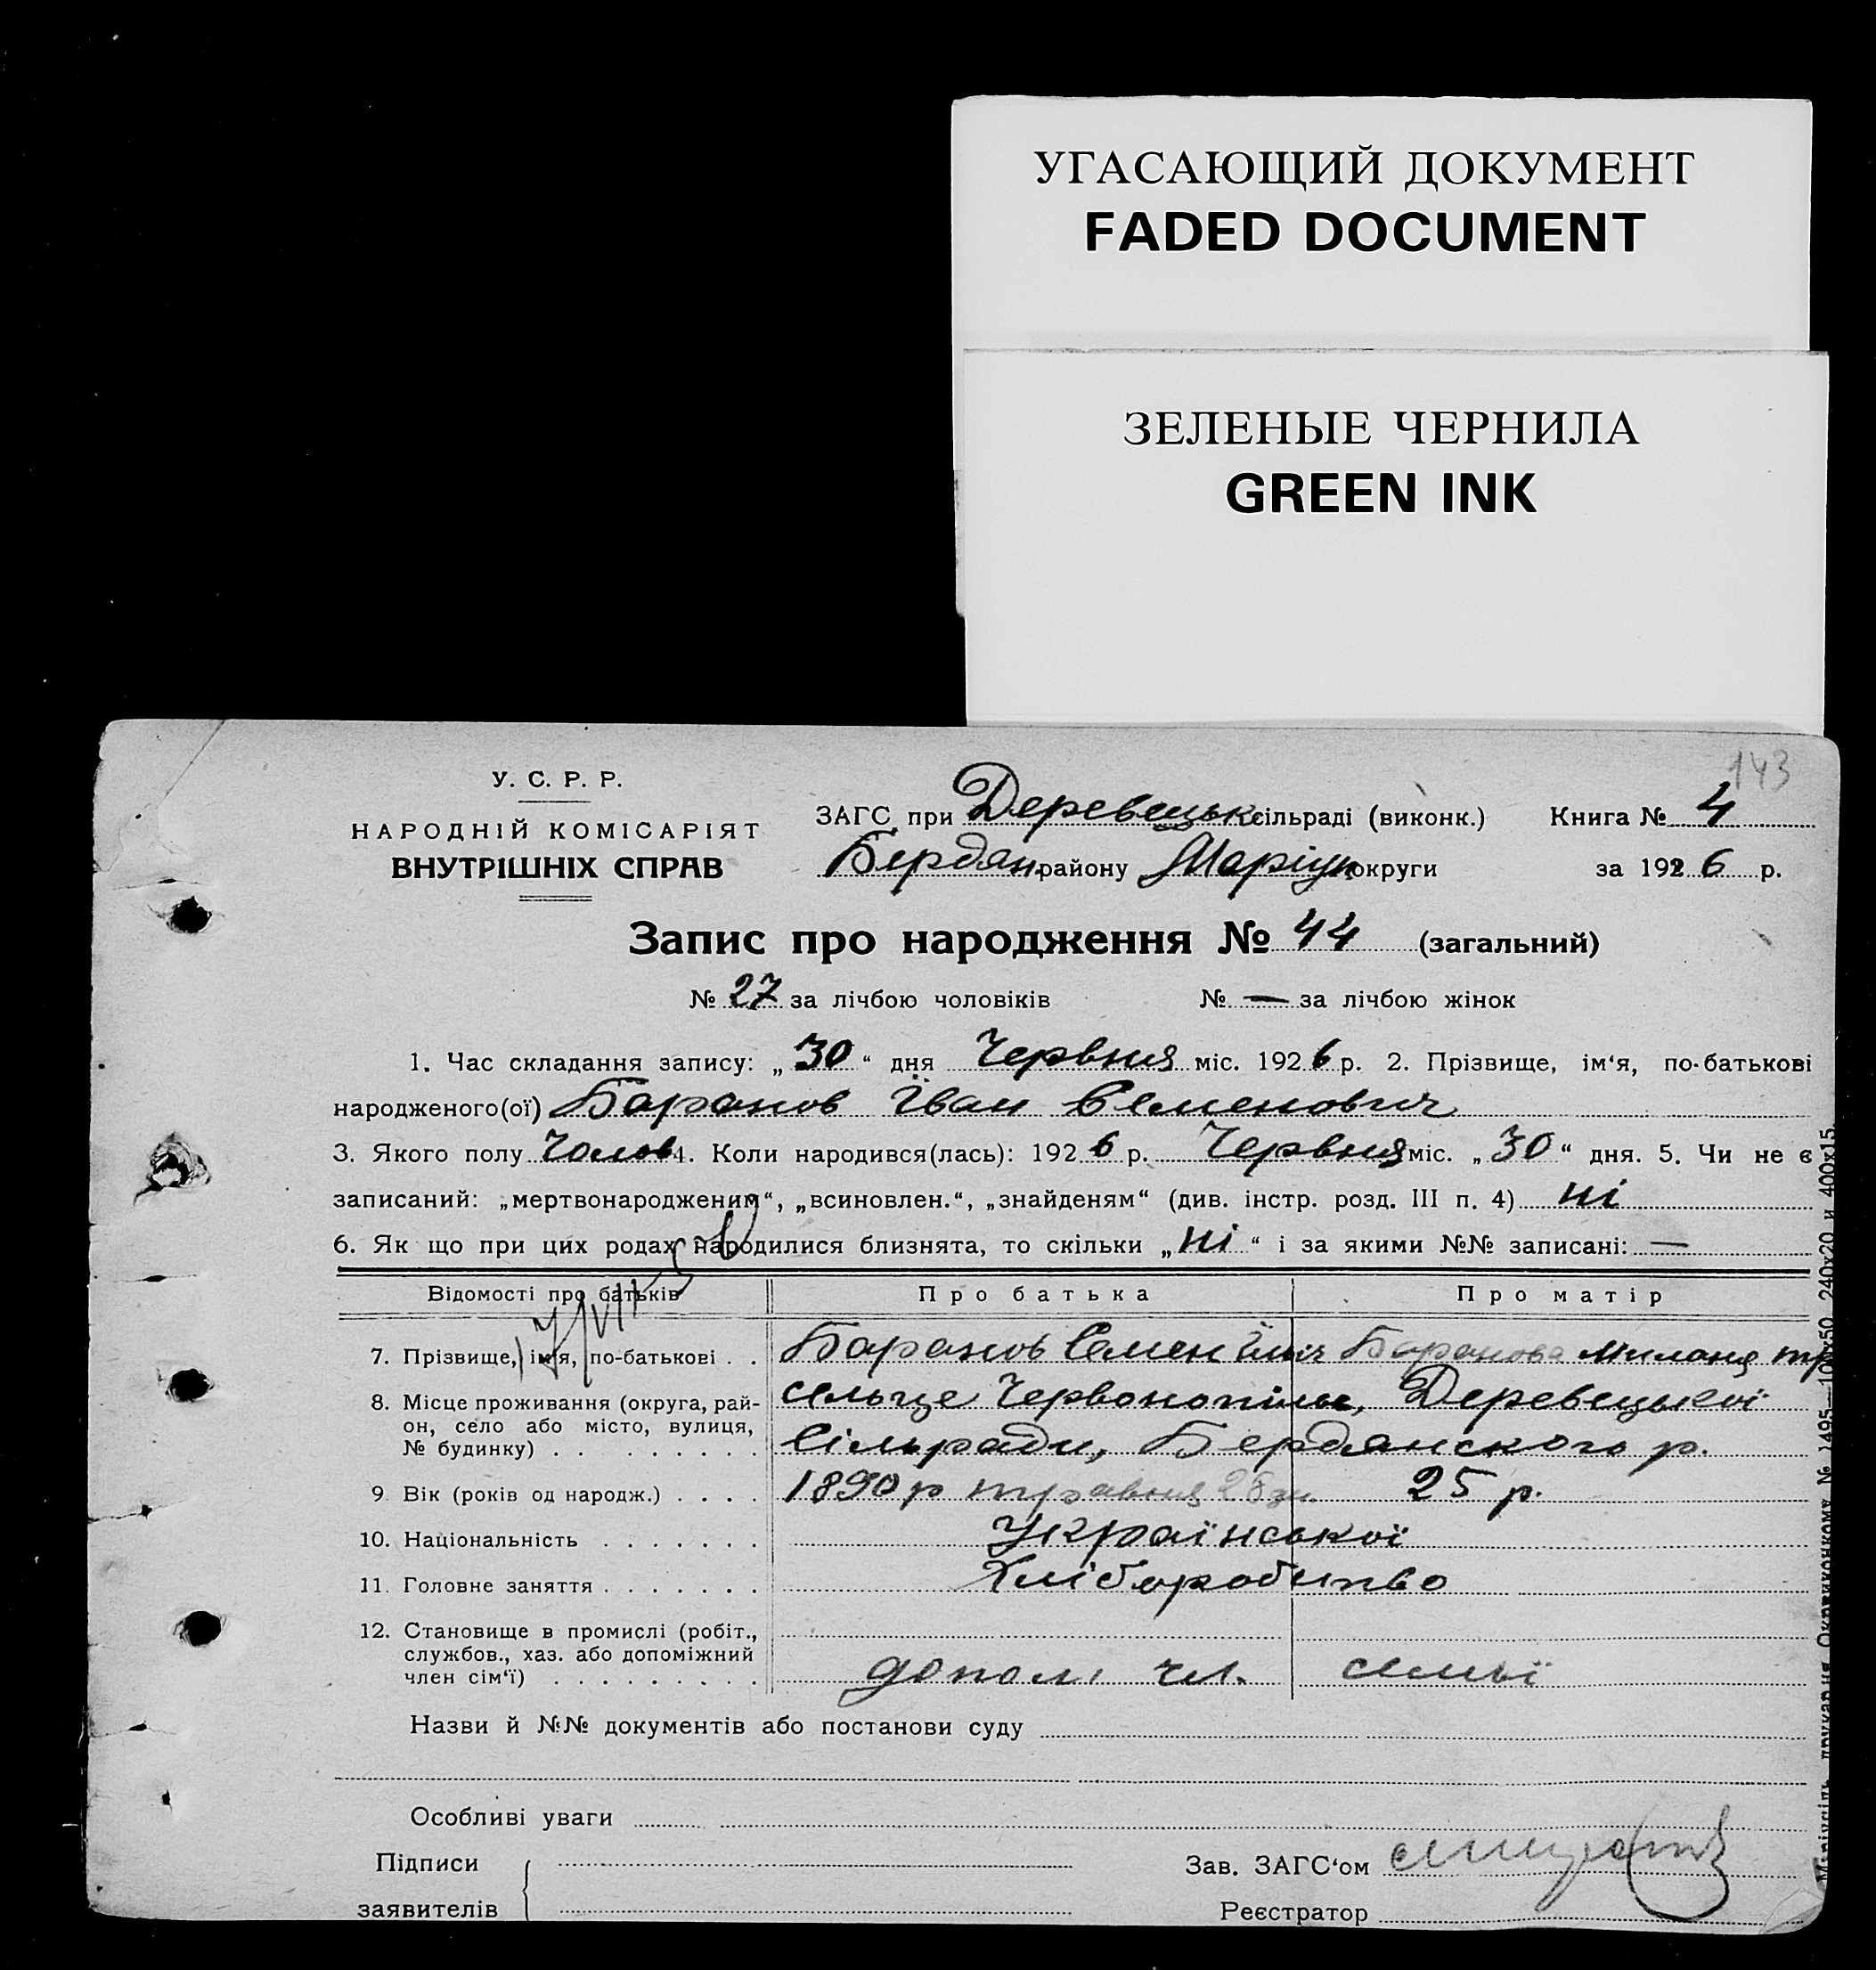 УГАСАЮЩИЙ ДОКУМЕНТ
FADED DOCUMENT
ЗЕЛЕНЫЕ ЧЕРНИЛА
GREEN INK
143
У. С. Р. Р.
НАРОДНІЙ КОМІСАРІЯТ
ВНУТРІШНІХ СПРАВ
ЗАГС при Деревецьк сільраді (виконк.) Книга № 4
Бердян. району Маріуп округи за 1926 р.
Запис про народження № 44 (загальний)
№ 27 за лічбою чоловіків № — за лічбою жінок
1. Час складання запису: „30“ дня Червня міс. 1926 р. 2. Прізвище, ім‘я, по-батькові
народженого(ої) Баранов Іван Семенович
3. Якого полу Чолов 4. Коли народився(лась): 1926 р. Червня міс. „30“ дня. 5. Чи не є
записаний: „мертвонародженим“, „всиновлен.“, „знайденям“ (див. інстр. розд. III п. 4) ні
6. Як що при цих родах народилися близнята, то скільки „ні“ і за якими №№ записані: —
Відомості про батьків Про батька Про матір
7. Прізвище, ім‘я, по-батькові . . Баранов Семен Ілліч Баранова Милания тр
8. Місце проживання (округа, рай-
он, село або місто, вулиця,
№ будинку) . . . . . . . . .
сельце Червонопілье, Деревецької
Сільради, Бердянского р.
9 Вік (років од народж.) . . . . 1890 р травня 25 дн. 25 р.
10. Національність . . . . . . . Української
11. Головне заняття . . . . . . . Хліборобство
12. Становище в промислі (робіт.,
службов., хаз. або допоміжний
член сім‘ї) . . . . . . . . .
допом чл. семьї
Назви й №№ документів або постанови суду
Особливі уваги
Підписи
заявителів
Зав. ЗАГС‘ом
Реєстратор
Маріупіль, друкарня Окрвиконкому № 1495—100х50 240х20 и 400х15.